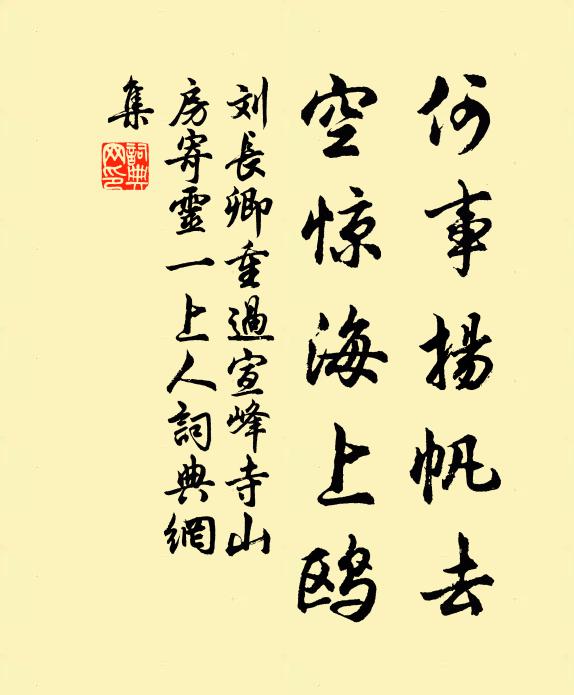 何事揚帆去
空惊海上鸥
刘長卿重過宣峰寺山
房寄靈一上人詞典網
集
詞典網印